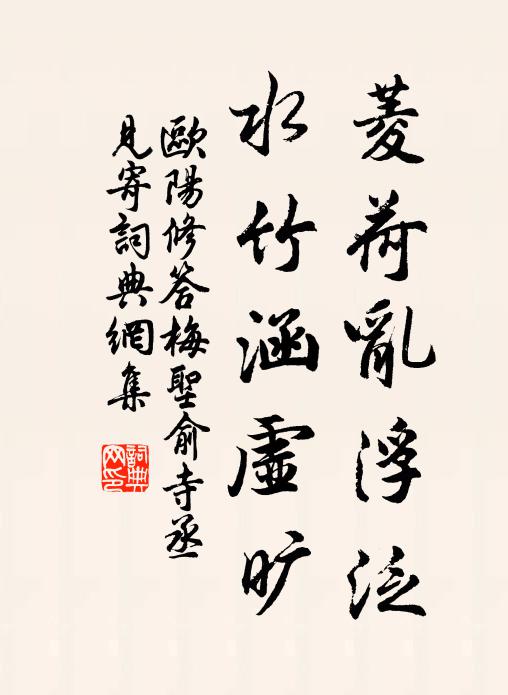 菱荷亂浮泛
水竹涵虛旷
歐陽修答梅聖俞寺丞
見寄詞典網集
詞典
网印